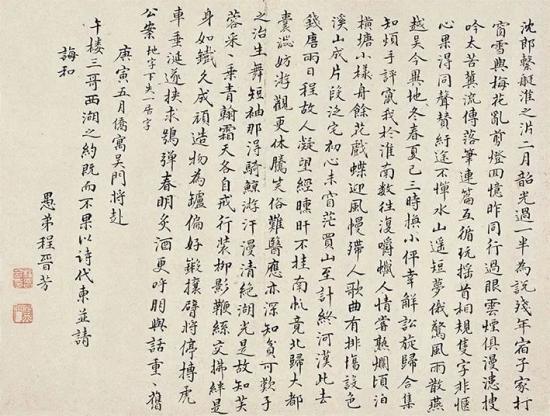 沈郎繫艇淮之涘二月韶光過一半為說殘年宿子家打
窗雪與梅花亂剪燈四憶昨同行過眼雲煙俱漫漶搜
吟太苦冀流傳落筆連篇互循玩揺首相規隻字非愜
心果得同聲贊紆途不憚水山遥短夢俄驚風雨散燕
越吳今異地冬春夏已三時換小伻幸解訟旋歸合集
知煩手評竄我於淮南數往復嚼蠟人情嘗熟爛頃泊
橫塘小樣舟餘花戲蝶迎風慢滯人歌曲有排傷設色
溪山成片段泛宅初心未厭茫買山至計終河漢此去
錢唐兩日程故人凝望經曛旰不挂南帆竟北歸大都
囊澁妨游觀更休騰笑俗難醫應亦深知貧可歎予
之治生舞短袖那得騎鯨游汗漫清絶湖光是故知芙
蓉采采乘青翰霜天各自戒行裝柳影鞭絲交拂綽是
身如鐵久成頑造物為鑪偏好鍛攘臂將停搏虎
車垂涎遂挾求鴞彈春明炙酒更呼朋與話重重舊
公案 地字下失一居字
庚寅五月僑寓吳門將赴
午樓三哥西湖之約既而不果以詩代柬並請
誨和
愚弟程晉芳